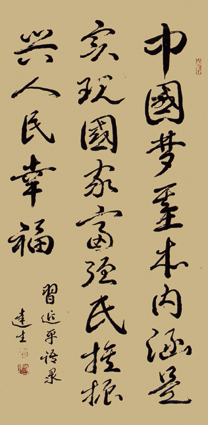 中國梦基本内涵是
实现國家富强民族振
兴人民幸福
習近平语录